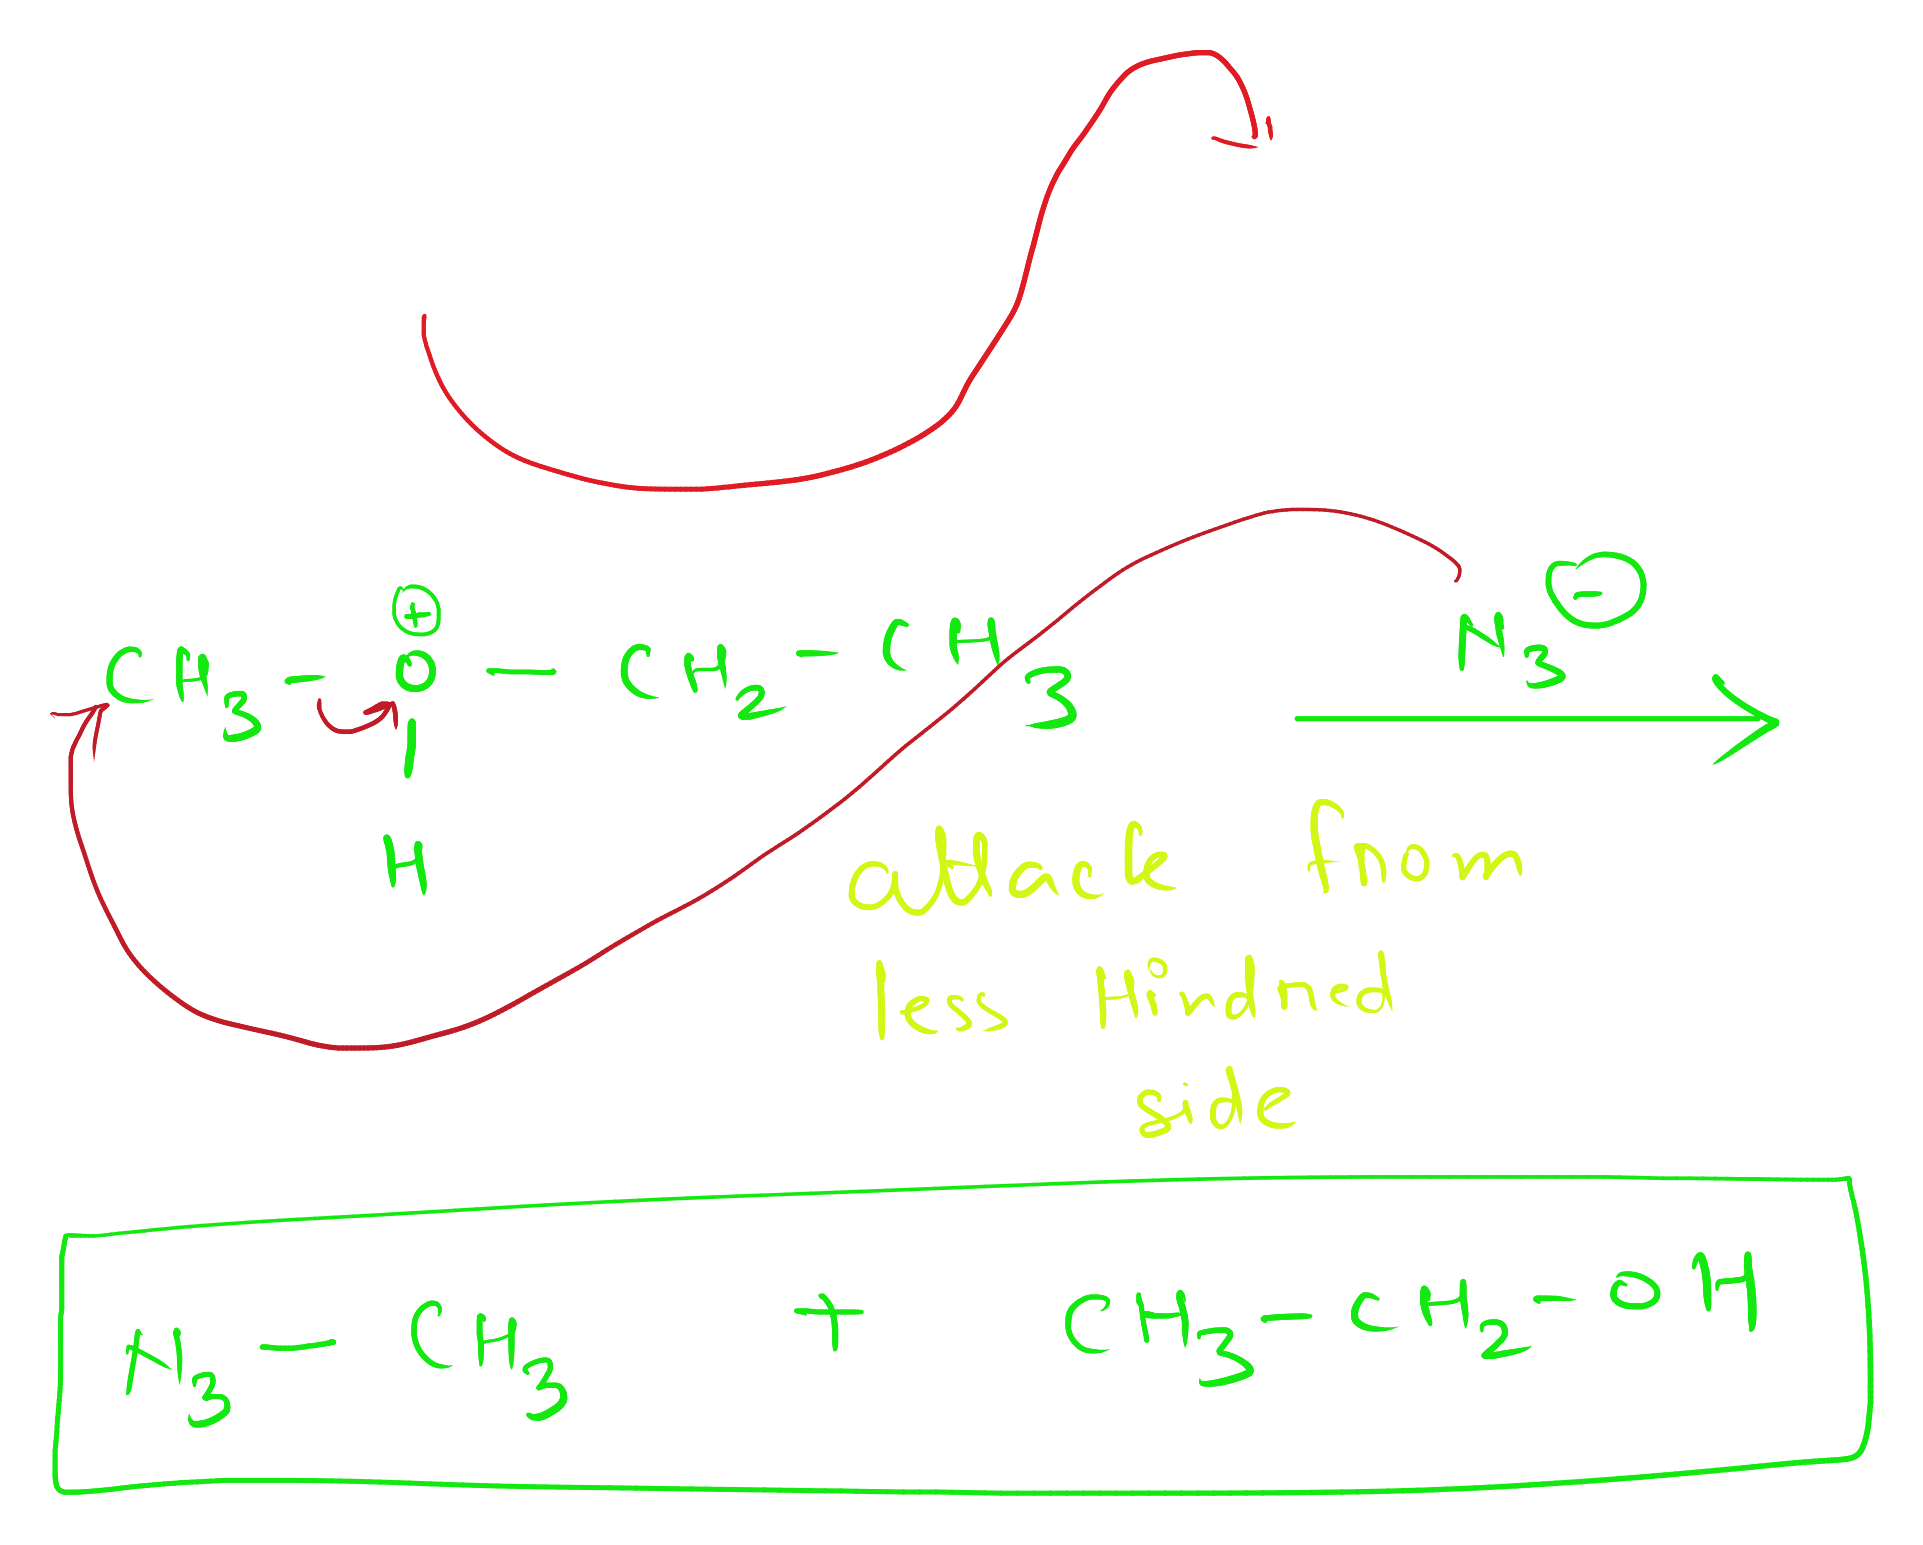 CH₃ - O⊕ - CH₂ - CH₃ N₃⊖ →
H
attack from
less Hindred
side
N₃ - CH₃ + CH₃ - CH₂ - OH